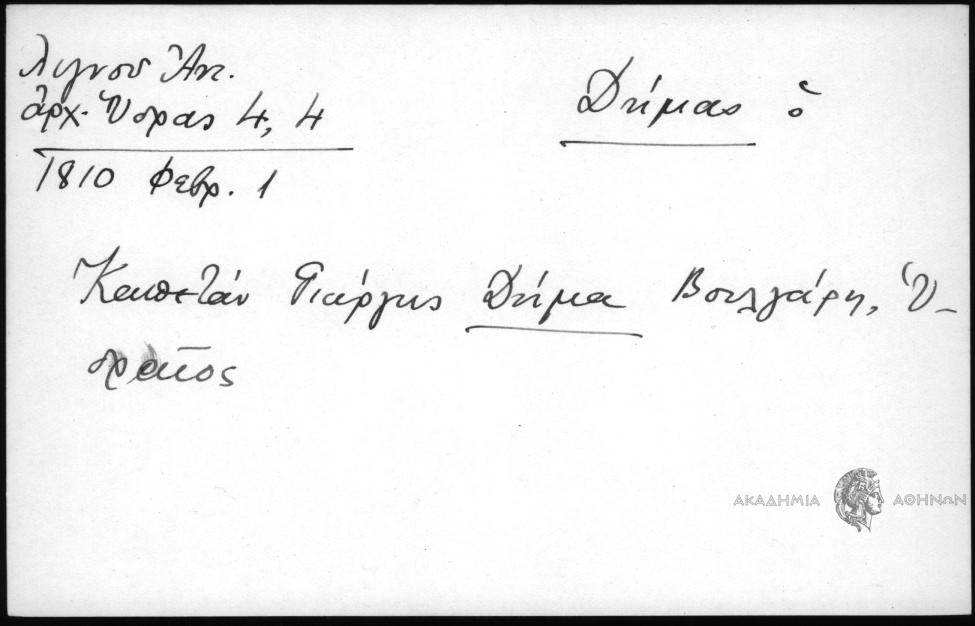 Λιγνοῦ Ἀντ.
Ἀρχ. Ὕδρας 4, 4
1810 Φεβρ. 1
Δήμας ὁ
Καπετάν Γιώργης Δήμα Βούλγαρη, Ὑ-
δραῖος
ΑΚΑΔΗΜΙΑ ΑΘΗΝΩΝ